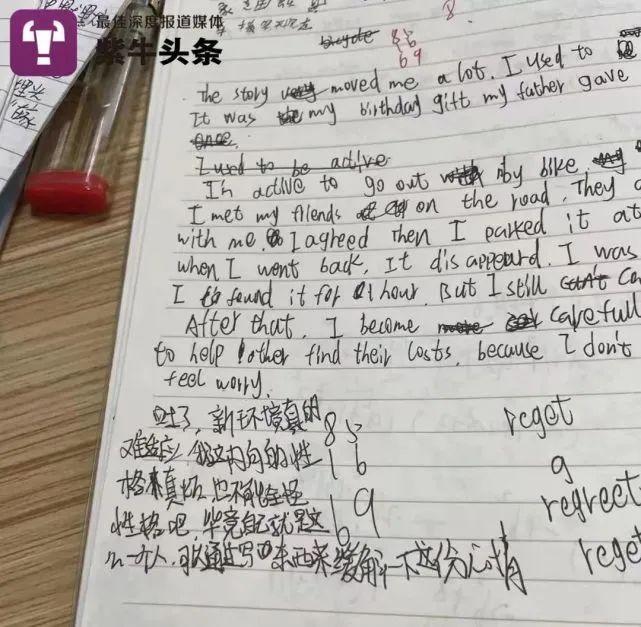 最佳深度报道媒体
紫牛头条
bicycle 85
69
8
The story moved me a lot. I used to
It was my birthday gift my father gave
once.
I used to be active
In active to go out by bike,
I met my friends on the road. They
with me. I agreed then I parked it at
when I went back. It dis appeard. I was
I found it for 1 hour. But I still can't
After that, I become more carefull
to help other find their losts, because I don't
feel worry.
吐了，新环境真的
难适应，我这内向的性
格真 也不能全怪
性格吧，毕竟自己就是这
么一个人，可以通过写 东西来缓解一下这份心情
85
16
69
reget
g
regreet
reget